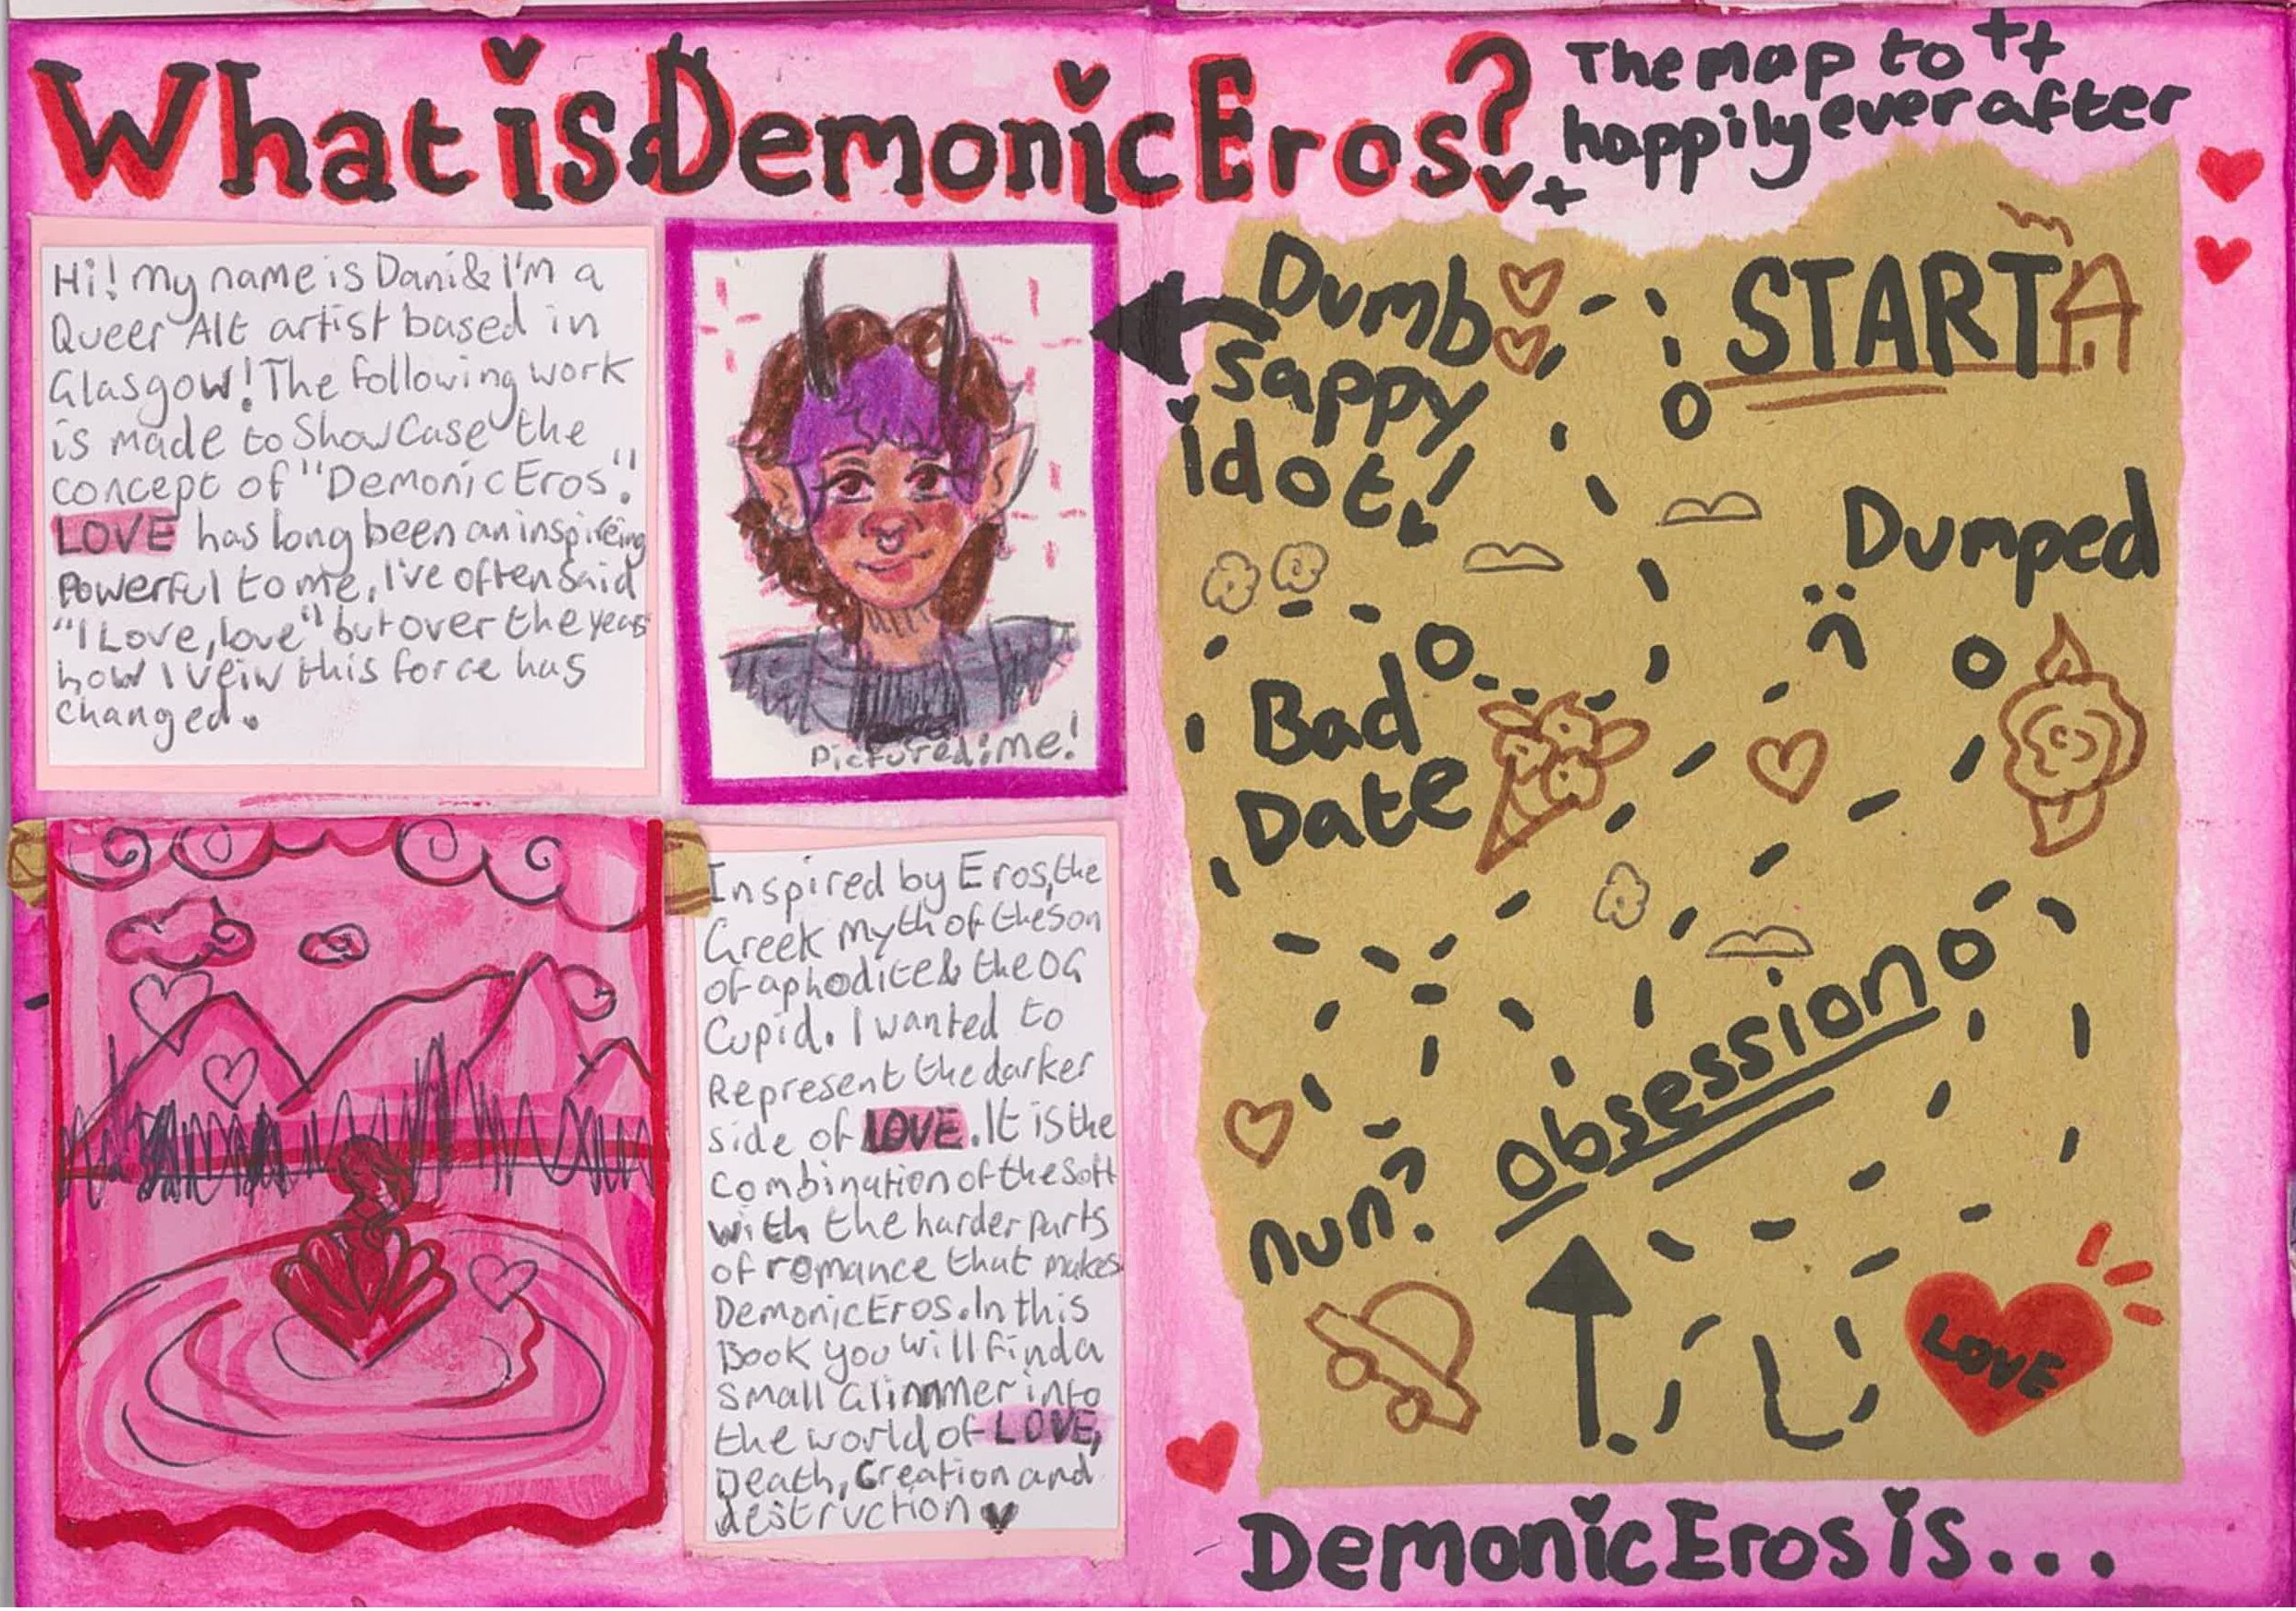 What is Demonic Eros?
Hi! my name is Dani & I'm a
Queer Alt artist based in
Glasgow! The following work
is made to ShowCase the
concept of "Demonic Eros".
LOVE has long been an inspireing
Powerful to me, I've often said
"I Love, love" but over the years
how I veiw this force has
changed.
Pictured: me!
Inspired by Eros, the
Greek myth of the son
of aphodite & the OG
Cupid. I wanted to
Represent the darker
side of LOVE. It is the
Combination of the Soft
with the harder parts
of romance that makes
Demonic Eros. In this
Book you will find a
Small Glimmer into
the world of LOVE,
Death, Creation and
destruction
The map to
happily ever after
START
Dumb
sappy
idot!
Dumped
Bad
Date
Obsession
nun?
LOVE
Demonic Eros is...